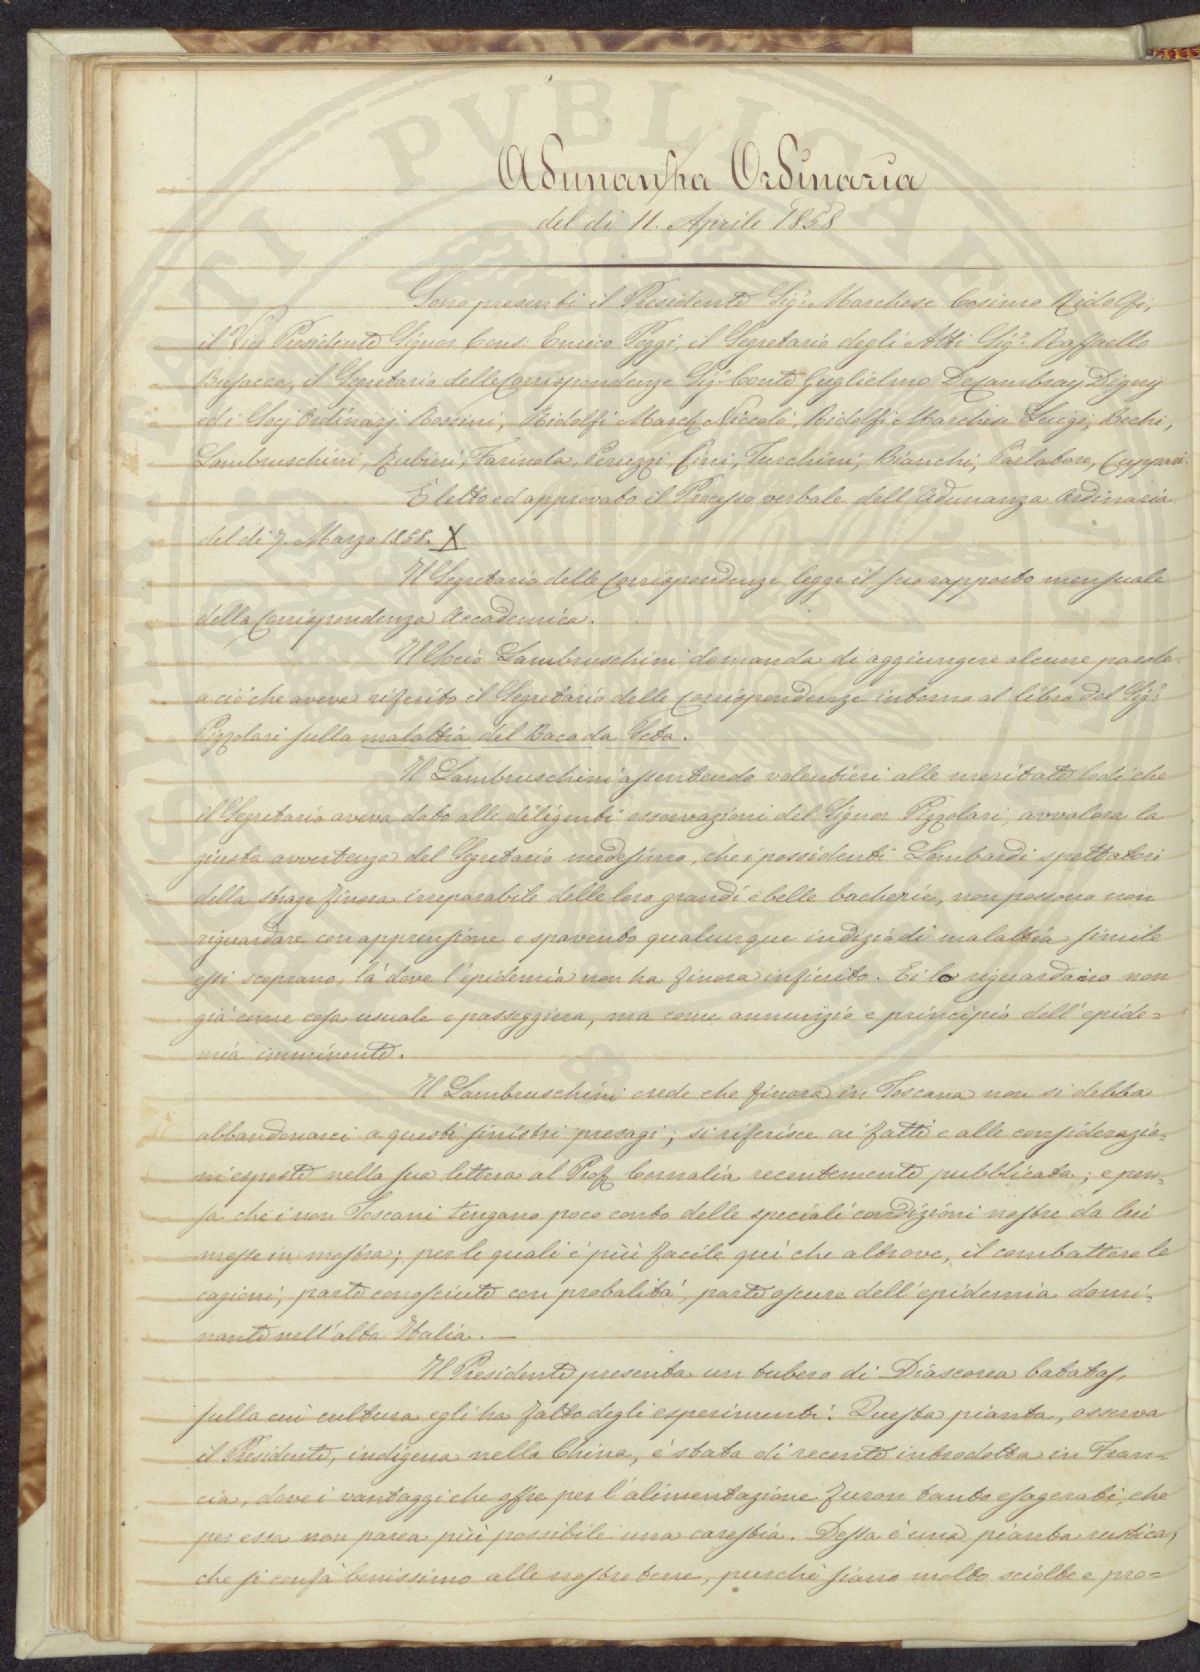 Adunanza Ordinaria
del dì 11. Aprile 1858
Sono presenti il Presidente Sig.r Marchese Cosimo Ridolfi,
il Vice Presidente Signor Cons: Enrico Poggi, il Segretario degli Atti Sig.r Raffaello
Busacca, il Segretario delle Corrispondenze Sig.r Conte Guglielmo DeCambray Digny
ed i Socj Ordinarj Bossini, Ridolfi March. Niccolò, Ridolfi Marchese Luigi, Bechi,
Lambruschini, Rubieri, Farinola, Peruzzi, Cini, Turchini, Bianchi, Parlatore, Cuppari.
È letto ed approvato il Processo verbale dell'Adunanza Ordinaria
del dì 7. Marzo 1858. X
Il Segretario delle Corrispondenze legge il suo rapporto mensuale
della Corrispondenza Accademica.
Il Socio Lambruschini domanda di aggiungere alcune parole
a ciò che aveva riferito il Segretario delle Corrispondenze intorno al libro del Sig.r
Pizzolari sulla malattia del Baco da Seta.
Il Lambruschini assentendo volentieri alle meritate lodi che
il Segretario aveva dato alle diligenti osservazioni del Signor Pizzolari, avvalora la
giusta avvertenza del Segretario medesimo, che i possidenti Lombardi spettatori
della strage finora irreparabile delle loro grandi e belle bacherie, non possono non
riguardare con apprensione e spavento qualunque indizio di malattia simile
essi scoprano, là dove l'epidemia non ha finora infierito. Ei lo riguardano non
già come cosa usuale e passeggiera, ma come annunzio e principio dell'epide=
mia imminente.
Il Lambruschini crede che finora in Toscana non si debba
abbandonarci a questi sinistri presagi; si riferisce ai fatti e alle considerazio=
ni esposte nella sua lettera al Prof. Cornalia recentemente pubblicata; e pen=
sa che i non Toscani tengano poco conto delle speciali condizioni nostre da lui
messe in mostra; per le quali è più facile quì che altrove, il combattere le
cagioni, parte conosciute con probalità, parte oscure dell'epidemia domi=
nante nell'alta Italia. —
Il Presidente presenta un tubero di Diascorea batatas,
sulla cui cultura egli ha fatto degli esperimenti. Questa pianta, osserva
il Presidente, indigena nella China, è stata di recente introdotta in Fran=
cia, dove i vantaggi che offre per l'alimentazione furon tanto esagerati, che
per essa non parea più possibile una carestia. Dessa è una pianta rustica,
che si confà benissimo alle nostre terre, purchè siano molto sciolte e pro=